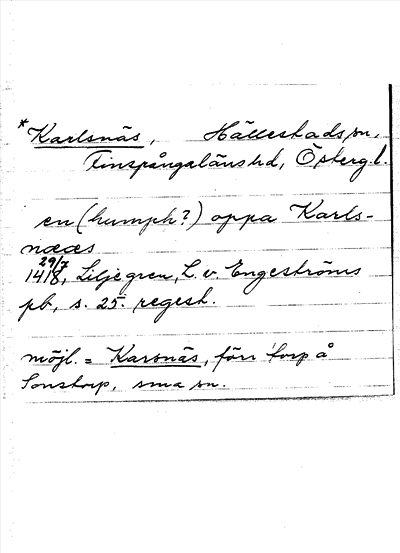 *Karlsnäs, Hällestads sn,
Finspångaläns hd, Österg. l.
en (humph?) oppa Karls-
næs
29/7
1418, Liljegren, L. v. Engeströms
pb, s. 25. regest.
möjl. = Karsnäs, förr torp å
Sonstorp, sma sn.